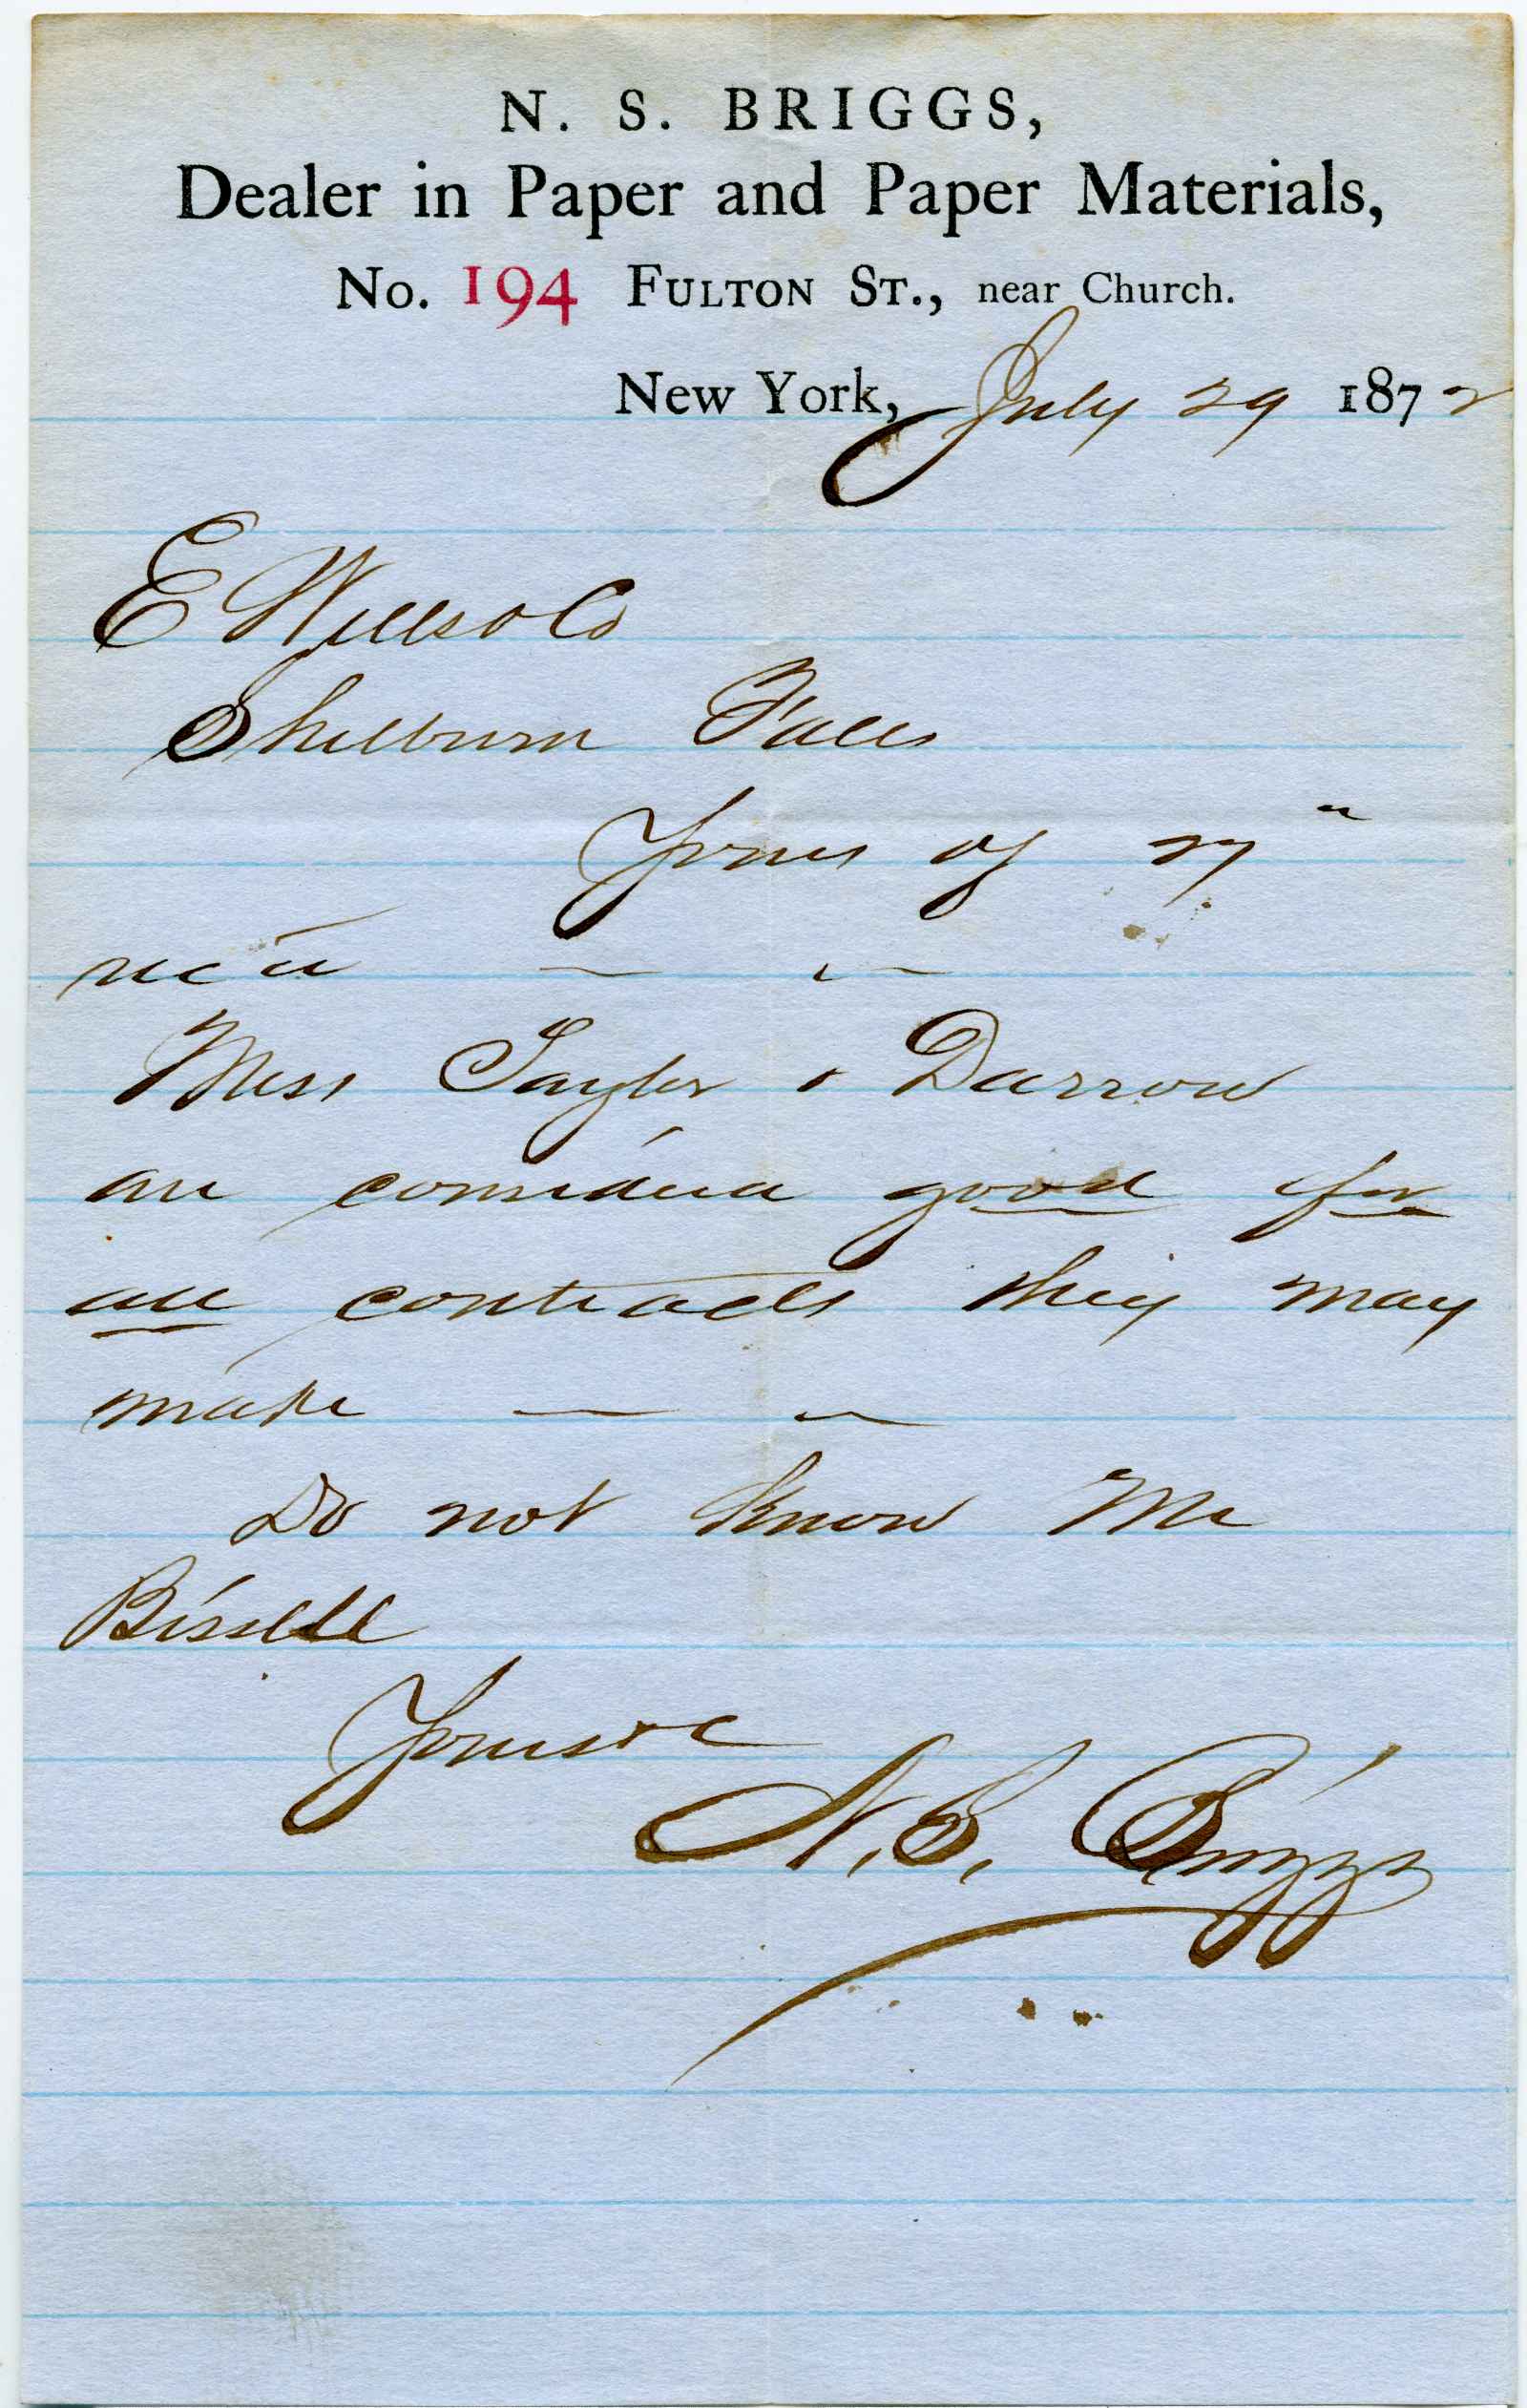 N. S. BRIGGS,
Dealer in Paper and Paper Materials,
No. 194 FULTON ST., near Church.
New York, July 29 1872
E Wells & Co
Shelburn Falls
Yours of 27"
rec'd
Mess Taylor & Darrow
are considered good for
all contracts they may
make
Do not know Mr
Bissell
Yours &c
N. S. Briggs